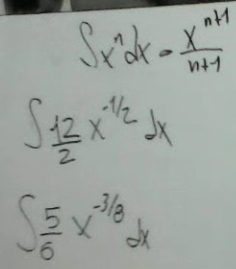 ∫xⁿdx = xⁿ⁺¹/n+1
∫12/2 x^-1/2 dx
∫5/6 x^-3/8 dx